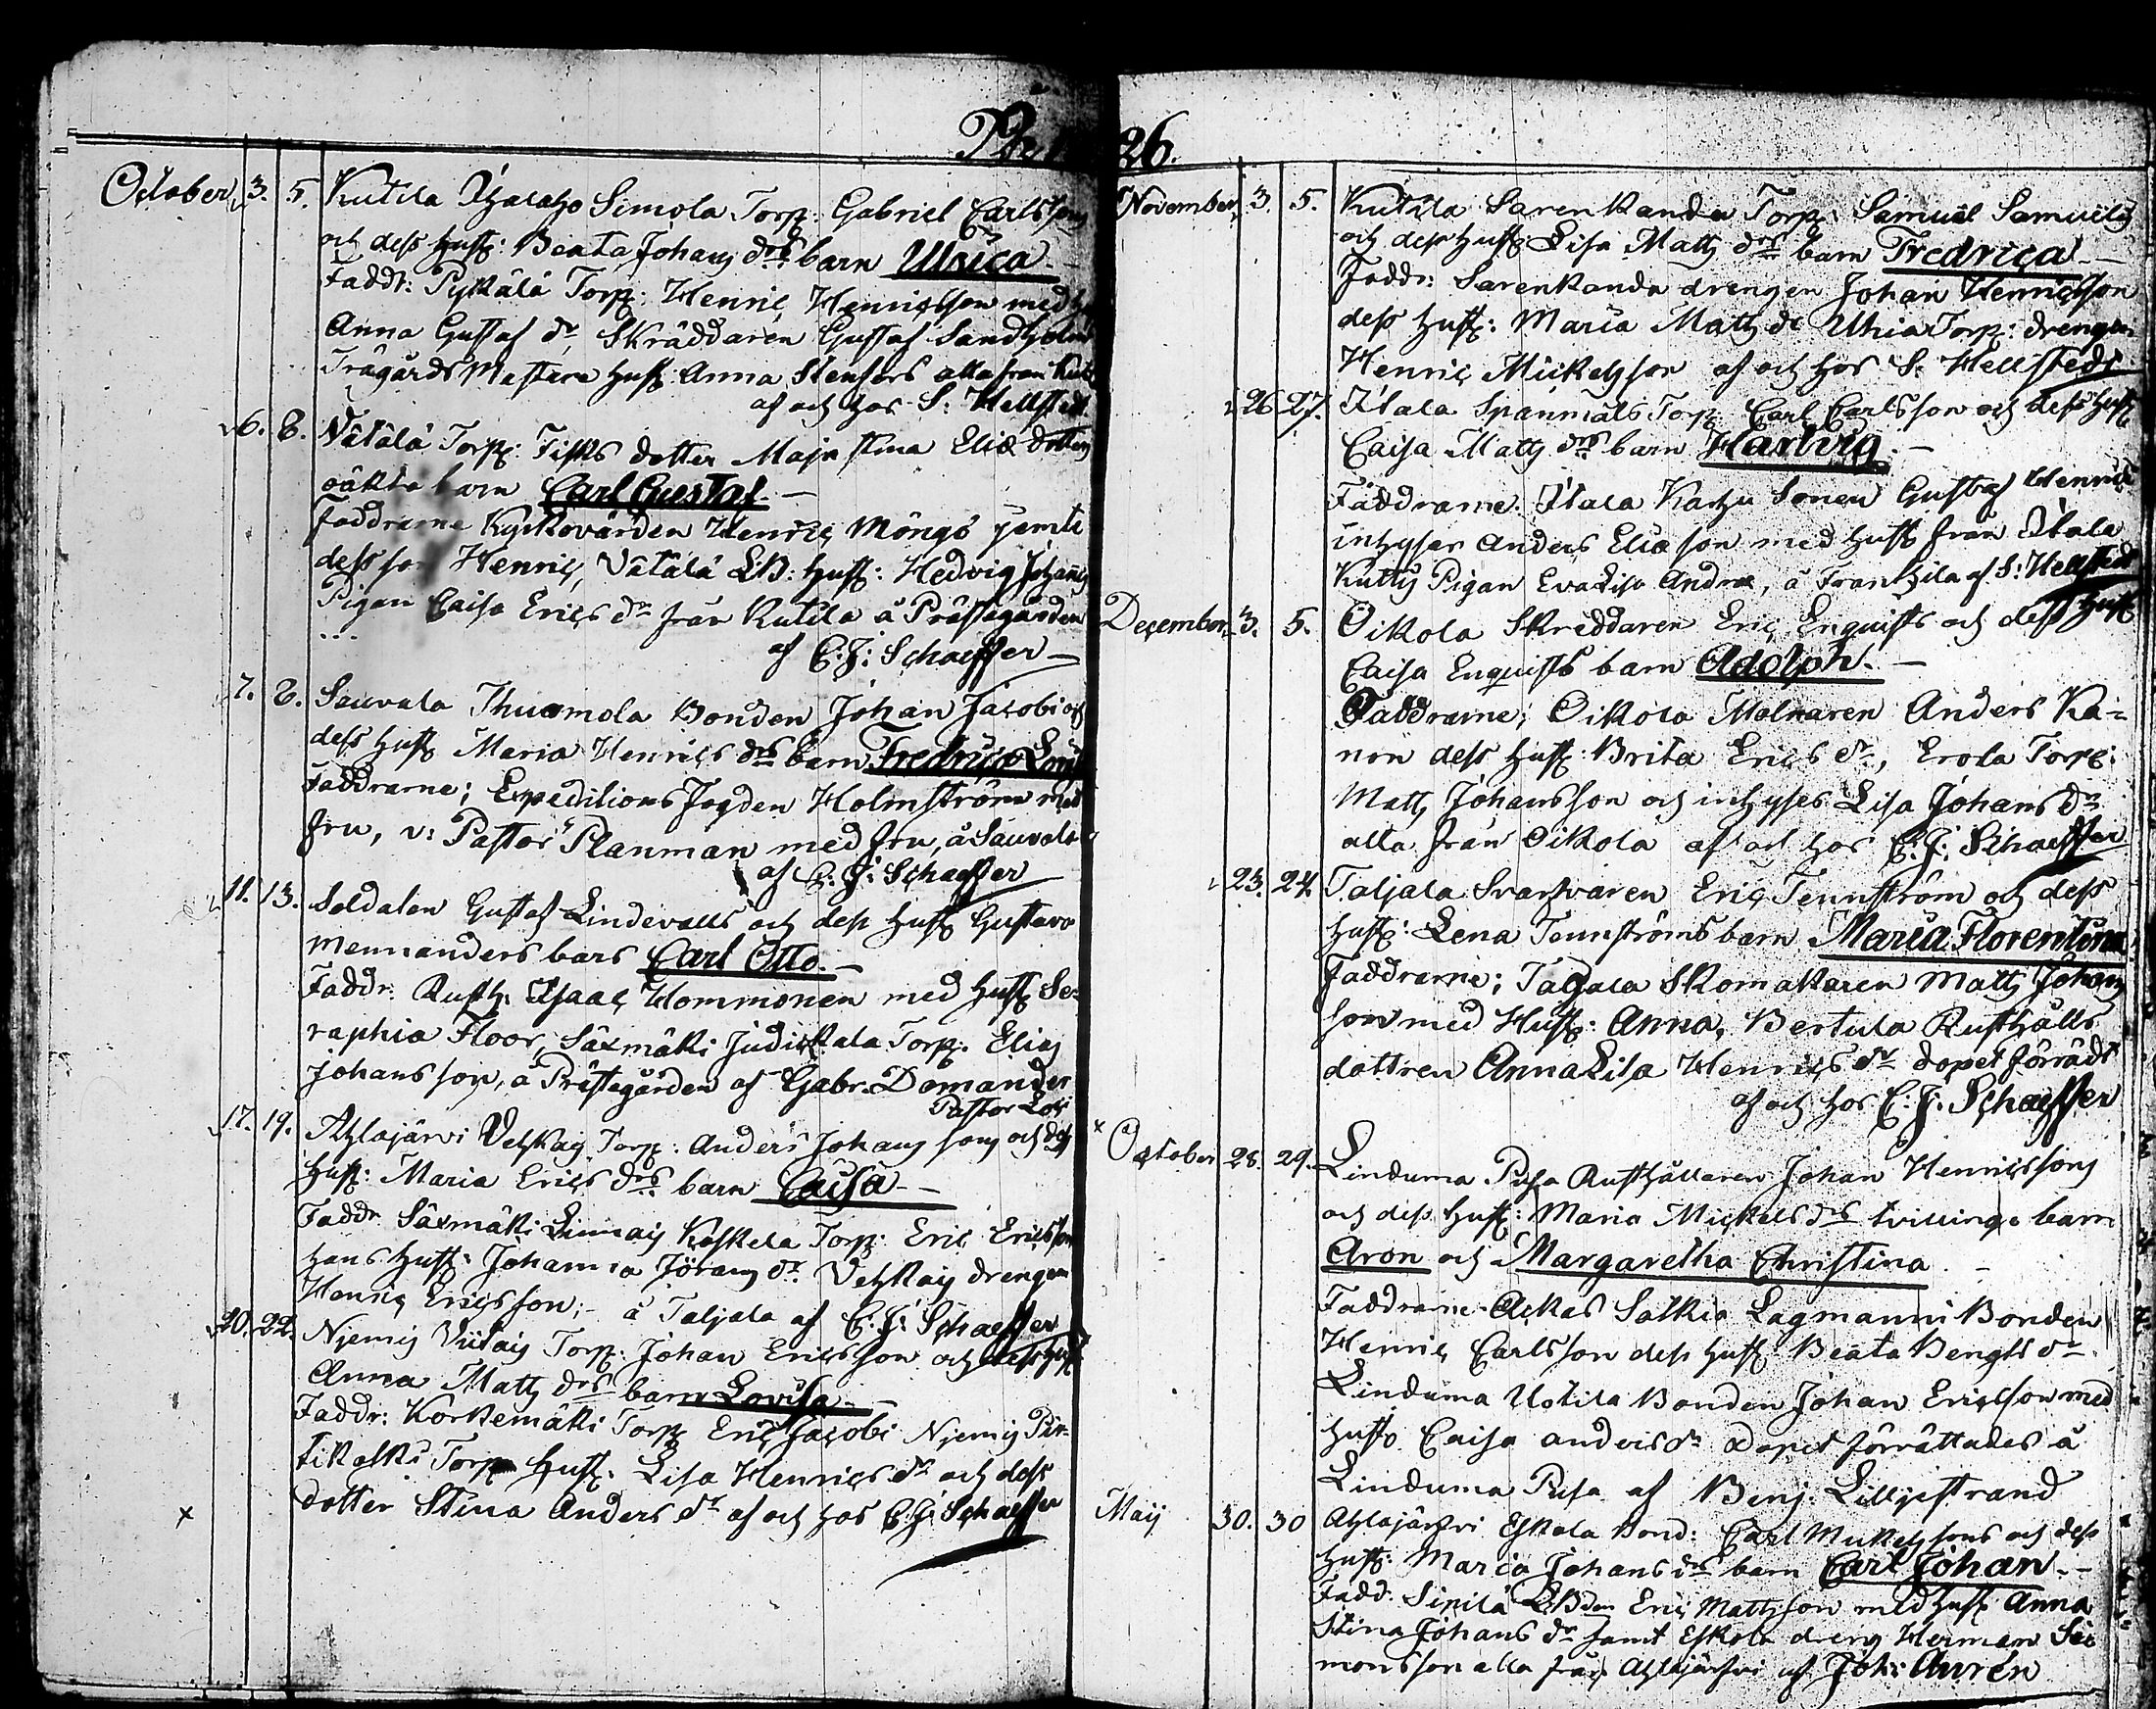 26.
October 3. 5. Kutila Simola Torp: Gabriel Carlssons
och dess hust: Beata Johans drs barn Ulrica
Faddr: Pykälä Torp: Henric Henricsson med
Anna Gustaf dr, Skräddaren Gustaf Sandholm
Trägårds Mästare hust: Anna Stenfors alla från
af och hos S: Hellstedt
6. 8. Torp: Fisks dotter Maja Stina Eliæ dotters
oäkta barn Carl Gustaf.
Faddrarne Kyrkovärden Henric Möngö jemte
dess son Henric, Vätälä hust: Hedvig Johans
Pigan Caisa Erics dr från Kutila å Prästegården
af C: J: Schaeffer
7. 8. Sauvala Thuomola Bonden Johan Jacobi och
dess hust Maria Henrics drs barn Fredrica
Faddrarne; Expeditions Fogden Holmström med
fru, v: Pastor Planman med fru, å Sauvala
af C: J: Schaeffer
11. 13. Soldaten Gustaf Lindevalls och dess hust Gustava
Mennanders barn Carl Otto.
Faddr. Rusth: Isaac Hommonen med hust Se-
raphia Floor, Säxmäki Judikkala Torp: Elias
Johansson, å Prästegården af Gabr. Domander
Pastor Loci
17. 19. Ahlajärvi Torp: Anders Johans sons och dess
hust: Maria Erics drs barn Caisa
Faddr Säxmäki Koskela Torp: Eric Ericsson
hans hust: Johanna Jörans dr. drengen
Henric Ericsson; å Taljala af C: J: Schaeffer
20. 22. Niemis Torp: Johan Ericsson och dess hust
Anna Matts drs barn Lovisa
Faddr: Korkemäki Torp Eric Jacobi Niemis Pir-
tikoski Torp hust: Lisa Henrics dr och dess
dotter Stina Anders dr af och hos C: J: Schaeffer
November 3. 5. Kutila Sarenkanda Torp: Samuel Samuels
och dess hust: Lisa Matts drs barn Fredrica
Faddr: Sarenkanda drengen Johan Henricsson
dess hust: Maria Matts dr Torp: drengen
Henric Mickelsson af och hos S: Hellstedt
26 27. Itala Spanmäls Torp Carl Carlsson och dess hust
Caisa Matts drs barn Hartvig
Faddrarne. Itala Karhu Sonen Gustaf Henric
inhyses Anders Eliæ son med hust från Itala
Pigan Eva Lisa Andræ, å Frantsila af S: Hellstedt
December 3. 5. Oikola Skreddaren Eric Enquists och dess hust
Caisa Enquists barn Adolph.
Faddrarne; Oikola Molnaren Anders Ka-
non dess hust: Brita Erics dr, Erola Torp:
Matts Johansson och inhyses Lisa Johans dr
alla från Oikola af och hos C: J: Schaeffer
23. 24 Taljala Svarfvaren Eric Tennström och dess
hust: Lena Tennströms barn Maria Florentina
Faddrarne; Taljala Skomakaren Matts Johans
son med Hust: Anna, Bertula Rusthålls
dottren Anna Lisa Henrics dr dopet förrädt
af och hos C: J: Schaeffer
October 28. 29. Linduma Pusa Rusthållaren Johan Henricssons
och dess hust: Maria Mickels drs tvillinge barn
Aron och Margaretha Christina
Faddrarne Ackas Salkio Lagmanni Bonden
Henric Carlsson dess hust: Beata Bengts dr
Linduma Uotila Bonden Johan Ericsson med
hust Caisa anders dr dopet förrättades å
Linduma Pusa af Benj. Lilljestrand
Maij 30. 30 Ahlajärfvi Eskola Bond: Carl Mickelssons och dess
hust: Maria Johans drs barn Carl Johan.
Fadd. Sipilä Eric Mattsson med hust Anna
Stina Johans dr samt Eskola dreng Herman Si-
monsson alla från Ahlajärfvi af Joh: Aurén